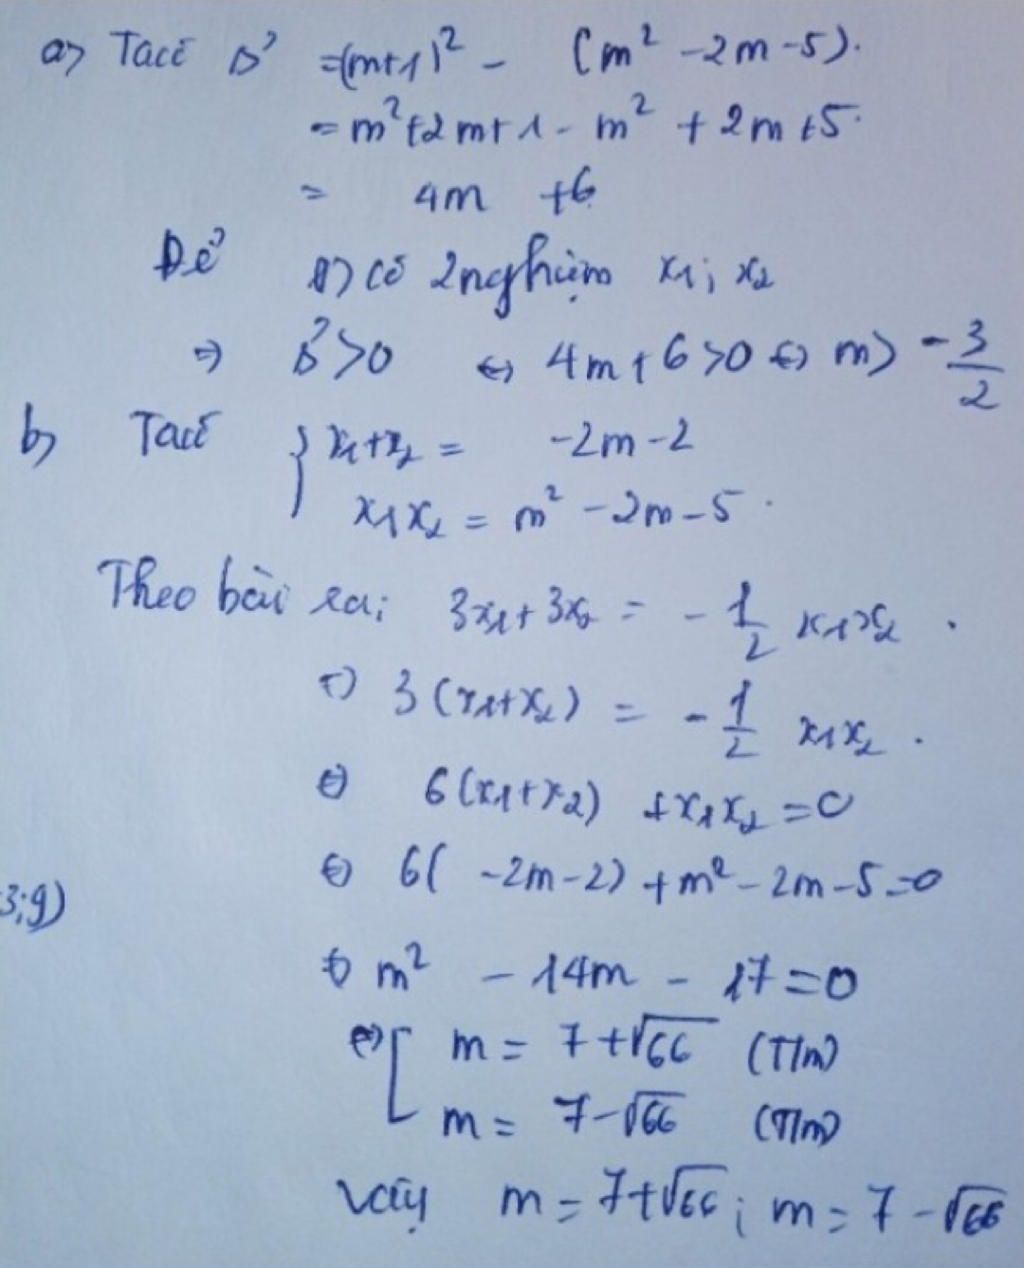 a) Ta có Δ' =(m+1)² - (m² -2m -5).
= m²+2m+1 - m² + 2m +5.
= 4m +6
Để (1) có 2 nghiệm x₁; x₂
⇒ Δ'>0 ⇔ 4m+6>0 ⇔ m> -3/2
b) Ta có { x₁+x₂ = -2m-2
x₁x₂ = m² -2m-5.
Theo bài ra; 3x₁+3x₂ = -1/2 x₁x₂.
⇔ 3(x₁+x₂) = -1/2 x₁x₂.
⇔ 6(x₁+x₂) +x₁x₂ =0
⇔ 6( -2m-2) +m² -2m-5=0
3;9)
⇔ m² - 14m - 17=0
⇔ [ m = 7+√66 (T/m)
m = 7-√66 (T/m)
Vậy m = 7+√66 ; m = 7 -√66